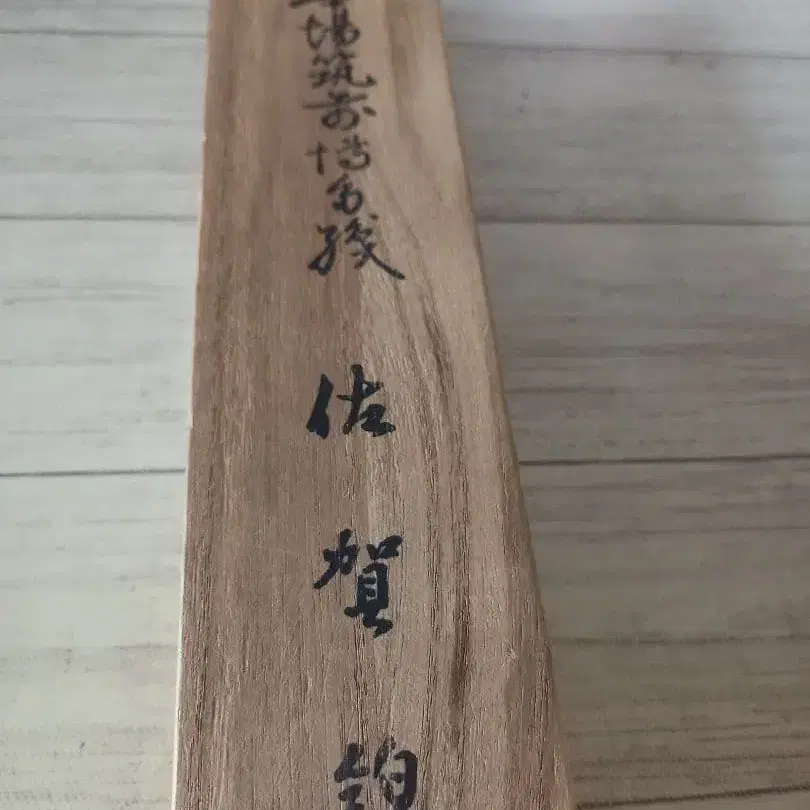 場筑前博多織 佐賀錦